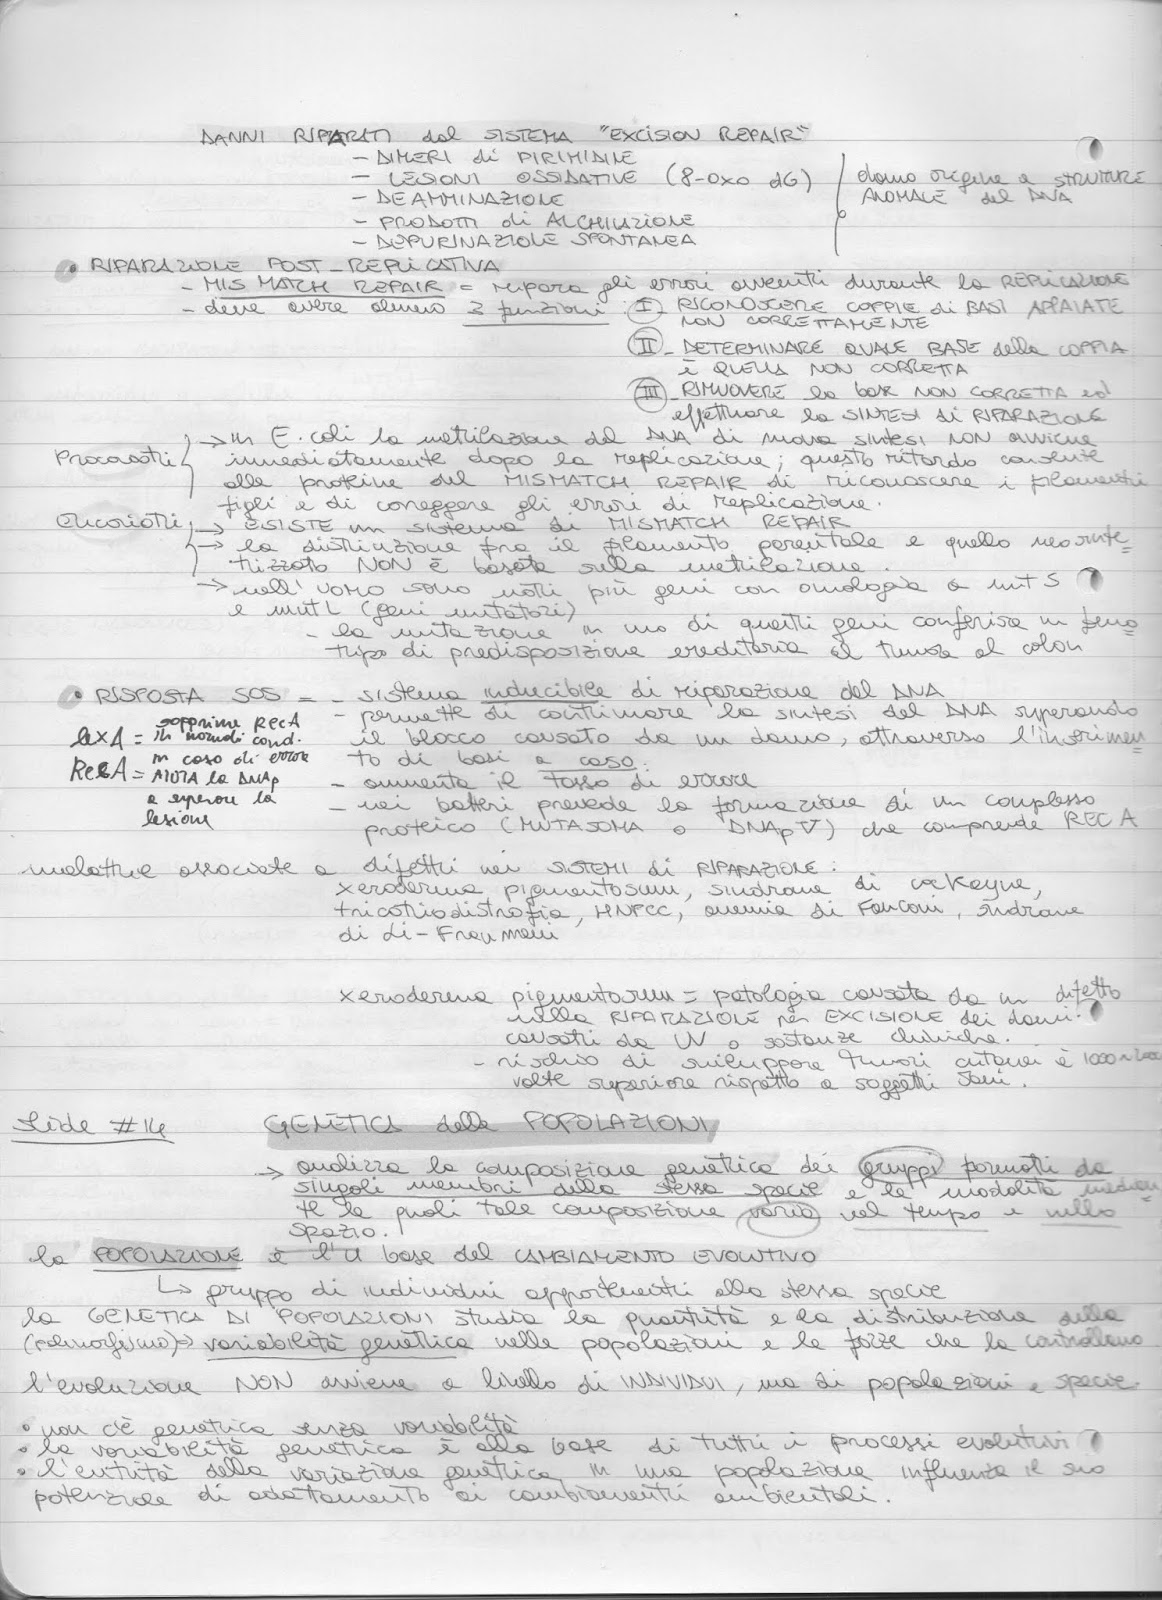 DANNI RIPARATI dal SISTEMA "EXCISION REPAIR"
- DIMERI di PIRIMIDINE
- LESIONI OSSIDATIVE (8-oxo dG)
- DEAMMINAZIONE
- PRODOTTI di ALCHILAZIONE
- DEPURINAZIONE SPONTANEA
danno origine a STRUTTURE
ANOMALE del DNA
• RIPARAZIONE POST-REPLICATIVA
- MISMATCH REPAIR = ripara gli errori avvenuti durante la REPLICAZIONE
- deve avere almeno 3 funzioni
I - RICONOSCERE COPPIE di BASI APPAIATE
NON CORRETTAMENTE
II - DETERMINARE QUALE BASE della COPPIA
È QUELLA NON CORRETTA
III - RIMUOVERE la base NON CORRETTA ed
effettuare la SINTESI di RIPARAZIONE
Procarioti
→ in E. coli la metilazione del DNA di nuova sintesi NON avviene
immediatamente dopo la replicazione; questo ritardo consente
alle proteine del MISMATCH REPAIR di riconoscere i filamenti
figli e di correggere gli errori di replicazione.
Eucarioti
→ ESISTE un sistema di MISMATCH REPAIR
→ la distinzione fra il filamento parentale e quello neosinte=
tizzato NON è basata sulla metilazione.
→ nell'UOMO sono noti più geni con omologia a mut S
e mut L (geni mutatori)
- la mutazione in uno di questi geni conferisce un feno=
tipo di predisposizione ereditaria al tumore al colon
• RISPOSTA SOS = - sistema inducibile di riparazione del DNA
- permette di continuare la sintesi del DNA superando
il blocco causato da un danno, attraverso l'inserimen
to di basi a caso.
- aumenta il tasso di errore
- nei batteri prevede la formazione di un complesso
proteico (MUTASOMA o DNAp V) che comprende REC A
lexA = sopprime RecA
in normali cond.
RecA = in caso di errore
AIUTA la DNAp
a superare la
lesione
malattie associate a difetti nei SISTEMI di RIPARAZIONE:
xeroderma pigmentosum, sindrome di cockayne,
tricotiodistrofia, HNPCC, anemia di Fanconi, sindrome
di Li-Fraumeni
xeroderma pigmentosum = patologia causata da un difetto
nella RIPARAZIONE per EXCISIONE dei danni
causati da UV o sostanze chimiche.
- rischio di sviluppare tumori cutanei è 1000 ~ 2000
volte superiore rispetto a soggetti sani.
Slide #14
GENETICA delle POPOLAZIONI
→ analizza la composizione genetica dei gruppi formati da
singoli membri della stessa specie e le modalità median
te le quali tale composizione varia nel tempo e nello
spazio.
la POPOLAZIONE è l'U base del CAMBIAMENTO EVOLUTIVO
↳ gruppo di individui appartenenti alla stessa specie
la GENETICA DI POPOLAZIONI studia la quantità e la distribuzione della
(polimorfismo)→ variabilità genetica nelle popolazioni e le forze che la controllano
l'evoluzione NON avviene a livello di INDIVIDUI, ma di popolazioni e specie.
• non c'è genetica senza variabilità
• la variabilità genetica è alla base di tutti i processi evolutivi
• l'entità della variazione genetica in una popolazione influenza il suo
potenziale di adattamento ai cambiamenti ambientali.